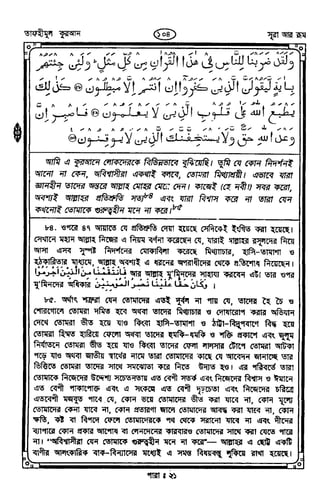 তাফহীমুল কুরআন
১০৪
সূরা আর রূম
وَلَقَدْ ضَرَبْنَا لِلنَّاسِ فِي هٰذَا الْقُرْاٰنِ مِنْ كُلِّ مَثَلٍ ؕ وَلَئِنْ جِئْتَهُمْ
بِاٰيَةٍ لَّيَقُوْلَنَّ الَّذِيْنَ كَفَرُوْٓا اِنْ اَنْتُمْ اِلَّا مُبْطِلُوْنَ ۞ كَذٰلِكَ
يَطْبَعُ اللّٰهُ عَلٰى قُلُوْبِ الَّذِيْنَ لَا يَعْلَمُوْنَ ۞ فَاصْبِرْ اِنَّ
وَعْدَ اللّٰهِ حَقٌّ وَّلَا يَسْتَخِفَّنَّكَ الَّذِيْنَ لَا يُوْقِنُوْنَ ۞
আমি এ কুরআনে লোকদেরকে বিভিন্নভাবে বুঝিয়েছি। তুমি যে কোন নিদর্শনই
আনো না কেন, অবিশ্বাসীরা একথাই বলবে, তোমরা মিথ্যাশ্রয়ী। এভাবে যারা
জ্ঞানহীন তাদের অন্তরে আল্লাহ মোহর মেরে দেন। কাজেই (হে নবী!) সবর করো,
অবশ্যই আল্লাহর প্রতিশ্রুতি সত্য৮৪ এবং যারা বিশ্বাস করে না তারা যেন
কখনোই তোমাকে গুরুত্বহীন মনে না করে।৮৫
৮৪. ওপরে ৪৭ আয়াতে যে প্রতিশ্রুতি দেয়া হয়েছে সেদিকেই ইংগিত করা হয়েছে।
সেখানে মহান আল্লাহ নিজের এ নিয়ম বর্ণনা করেছেন যে, যারাই আল্লাহর রসূলদের নিয়ে
আসা এসব সুস্পষ্ট নিদর্শনের মোকাবিলা করেছে মিথ্যাচার, হাসি-তামাশা ও
হঠকারিতার মাধ্যমে, আল্লাহ অবশ্যই এ ধরনের অপরাধীদের থেকে প্রতিশোধ নিয়েছেন।
فَانْتَقَمْنَا مِنَ الَّذِيْنَ اَجْرَمُوْا আর আল্লাহ মু'মিনদের সাহায্য করবেন এটা তার ওপর
মু'মিনদের অধিকার وَكَانَ حَقًّا عَلَيْنَا نَصْرُ الْمُؤْمِنِيْنَ ।
৮৫. অর্থাৎ শত্রুরা যেন তোমাদের এতই দুর্বল না পায় যে, তাদের হৈ চৈ ও
শোরগোলে তোমরা দমিত হবে অথবা তাদের মিথ্যাচার ও দোষারোপ করার অভিযান
দেখে তোমরা ভীত হয়ে যাও কিংবা হাসি-তামাশা ও ঠাট্টা-বিদ্রূপবাণে বিদ্ধ হয়ে
তোমরা হিম্মত হারিয়ে ফেলো অথবা তাদের হুমকি-ধমকি ও শক্তি প্রকাশে এবং জুলুম
নির্যাতনে তোমরা ভীত হয়ে যাও কিংবা তাদের ফেলা লালসার টোপে তোমরা আটকা
পড়ে যাও অথবা জাতীয় স্বার্থের নামে তারা তোমাদের কাছে যে আবেদন জানাচ্ছে তার
ভিত্তিতে তোমরা তাদের সাথে সমঝোতা করে নিতে উদ্যত হও। এর পরিবর্তে তারা
তোমাকে নিজেদের উদ্দেশ্য সচেতনতায় এত বেশী সতর্ক এবং নিজেদের বিশ্বাস ও ঈমানে
এত বেশী পাকাপোক্ত এবং এ সংকল্পে এত বেশী দৃঢ়চেতা এবং নিজেদের চরিত্রে
এতবেশী মজবুত পাবে যে, কোন ভয়ে তোমাদের ভীত করা যাবে না, কোন মূল্যে
তোমাদের কেনা যাবে না, কোন প্রতারণা জালে তোমাদের আবদ্ধ করা যাবে না, কোন
ক্ষতি, কষ্ট বা বিপদে ফেলে তোমাদেরকে পথ থেকে সরানো যাবে না এবং দীনের
ব্যাপারে কোন প্রকার আপোষ বা লেনদেনের কারবারও তোমাদের সাথে করা যেতে পারে
না। "অবিশ্বাসীরা যেন তোমাকে গুরুত্বহীন মনে না করে"— আল্লাহর এ ছোট্ট একটি
বাণীর আলংকারিক বাক-বিন্যাসের মধ্যেই এ সমস্ত বিষয়বস্তু লুকিয়ে রাখা হয়েছে।
পারা : ২১